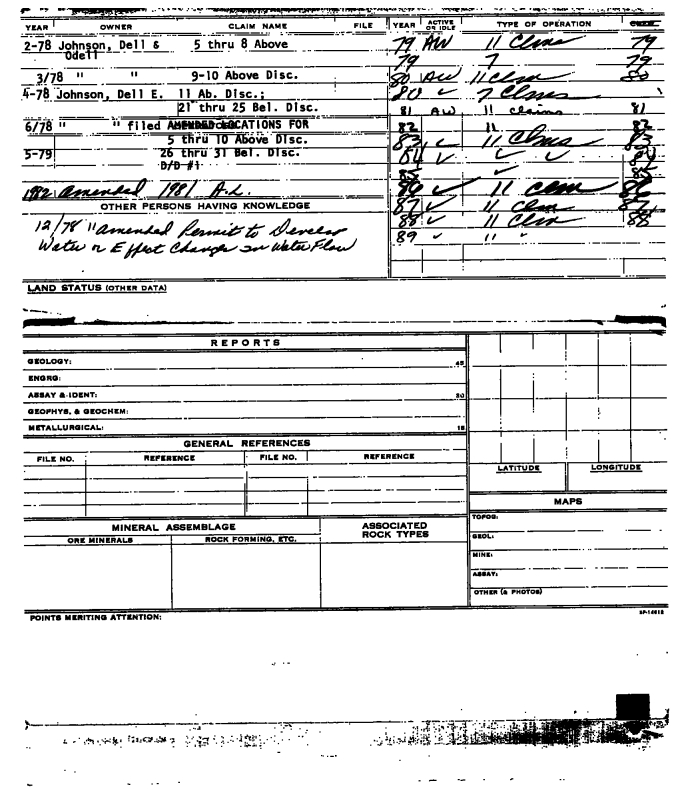 YEAR OWNER CLAIM NAME FILE YEAR ACTIVE OR IDLE TYPE OF OPERATION
2-78 Johnson, Dell & 5 thru 8 Above 79 AW 11 Clms 79
Odell 79 7 79
3/78 " " 9-10 Above Disc. 80 AW 11 clm 80
4-78 Johnson, Dell E. 11 Ab. Disc.; 80 ✓ 7 Clms
21 thru 25 Bel. Disc. 81 AW 11 claims 81
6/78 " " filed AMENDED LOCATIONS FOR 82 11 82
5 thru 10 Above Disc. 83 ✓ 11 Clms 83
5-79 26 thru 31 Bel. Disc. 84 ✓ ✓ ✓ 84
D/D #1 85 ✓
1982 amended 1981 A.L. 86 ✓ 11 clm 86
OTHER PERSONS HAVING KNOWLEDGE 87 ✓ 11 Clm 87
12/78 "amended Permit to Develop 88 ✓ 11 Clm 88
Water or Effect Changes in Water Flow 89 ✓ 11 "
LAND STATUS (OTHER DATA)
REPORTS
GEOLOGY: 45
ENGRG:
ASSAY & IDENT: 30
GEOPHYS. & GEOCHEM:
METALLURGICAL: 15
GENERAL REFERENCES
FILE NO. REFERENCE FILE NO. REFERENCE
LATITUDE LONGITUDE
MAPS
MINERAL ASSEMBLAGE ASSOCIATED ROCK TYPES
ORE MINERALS ROCK FORMING, ETC.
TOPOG:
GEOL:
MINE:
ASSAY:
OTHER (& PHOTOS)
POINTS MERITING ATTENTION: